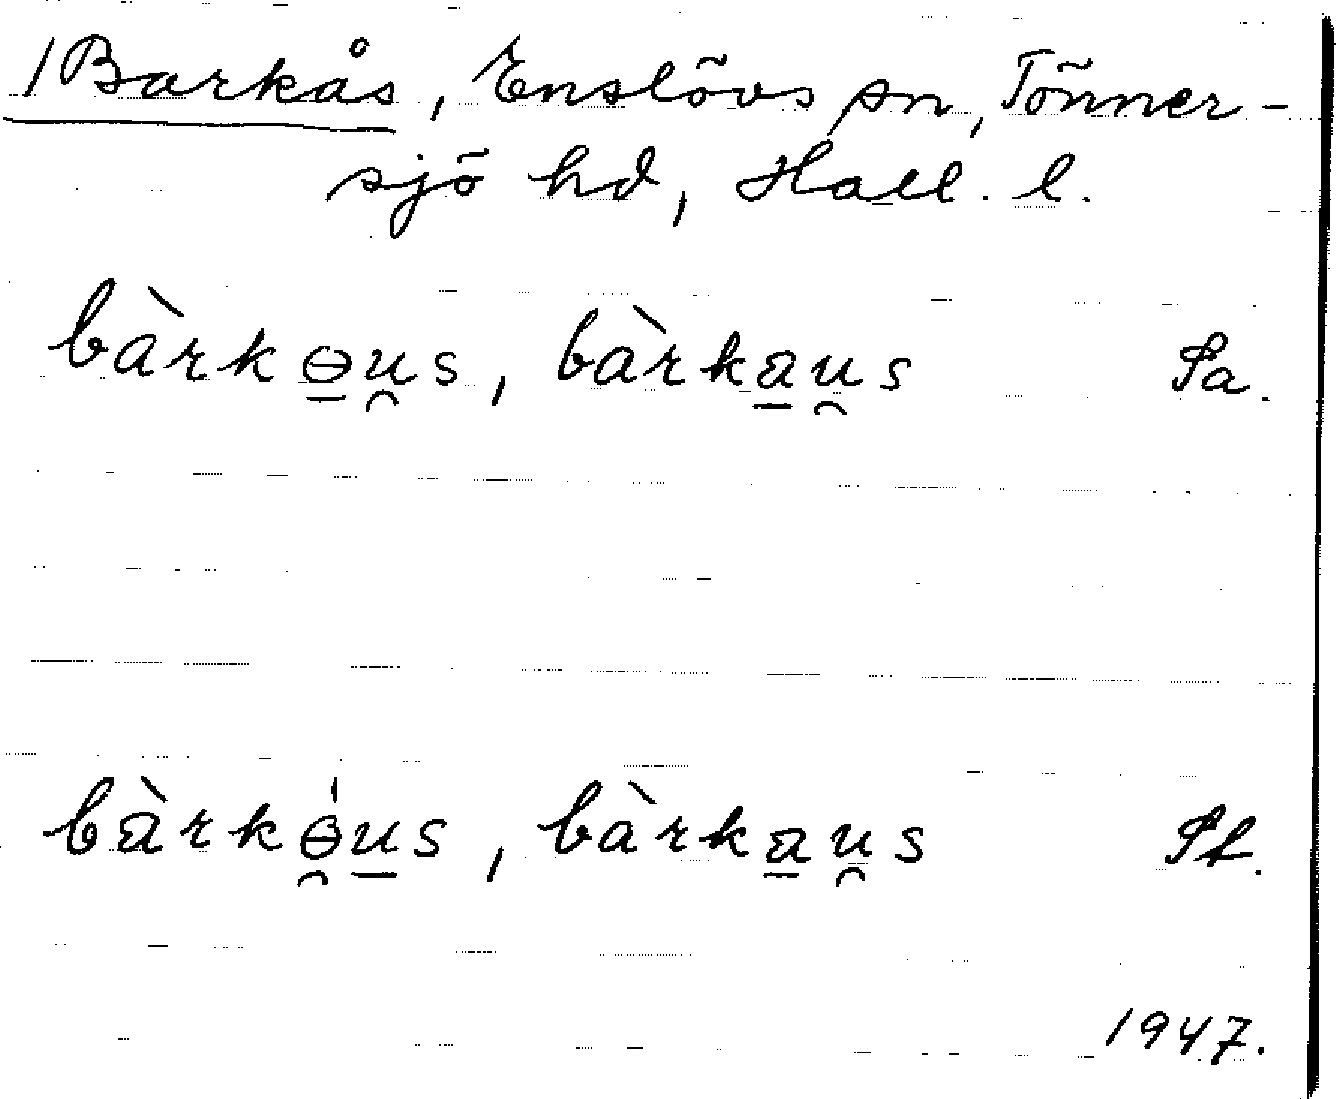 /Barkås, Enslövs sn, Tönner-
sjö hd, Hall. l.
bàrkɵ̱u̯s, bàrka̱u̯s Sa.
bàrkɵ̯́u̱s, bàrka̱u̯s Sf.
1947.